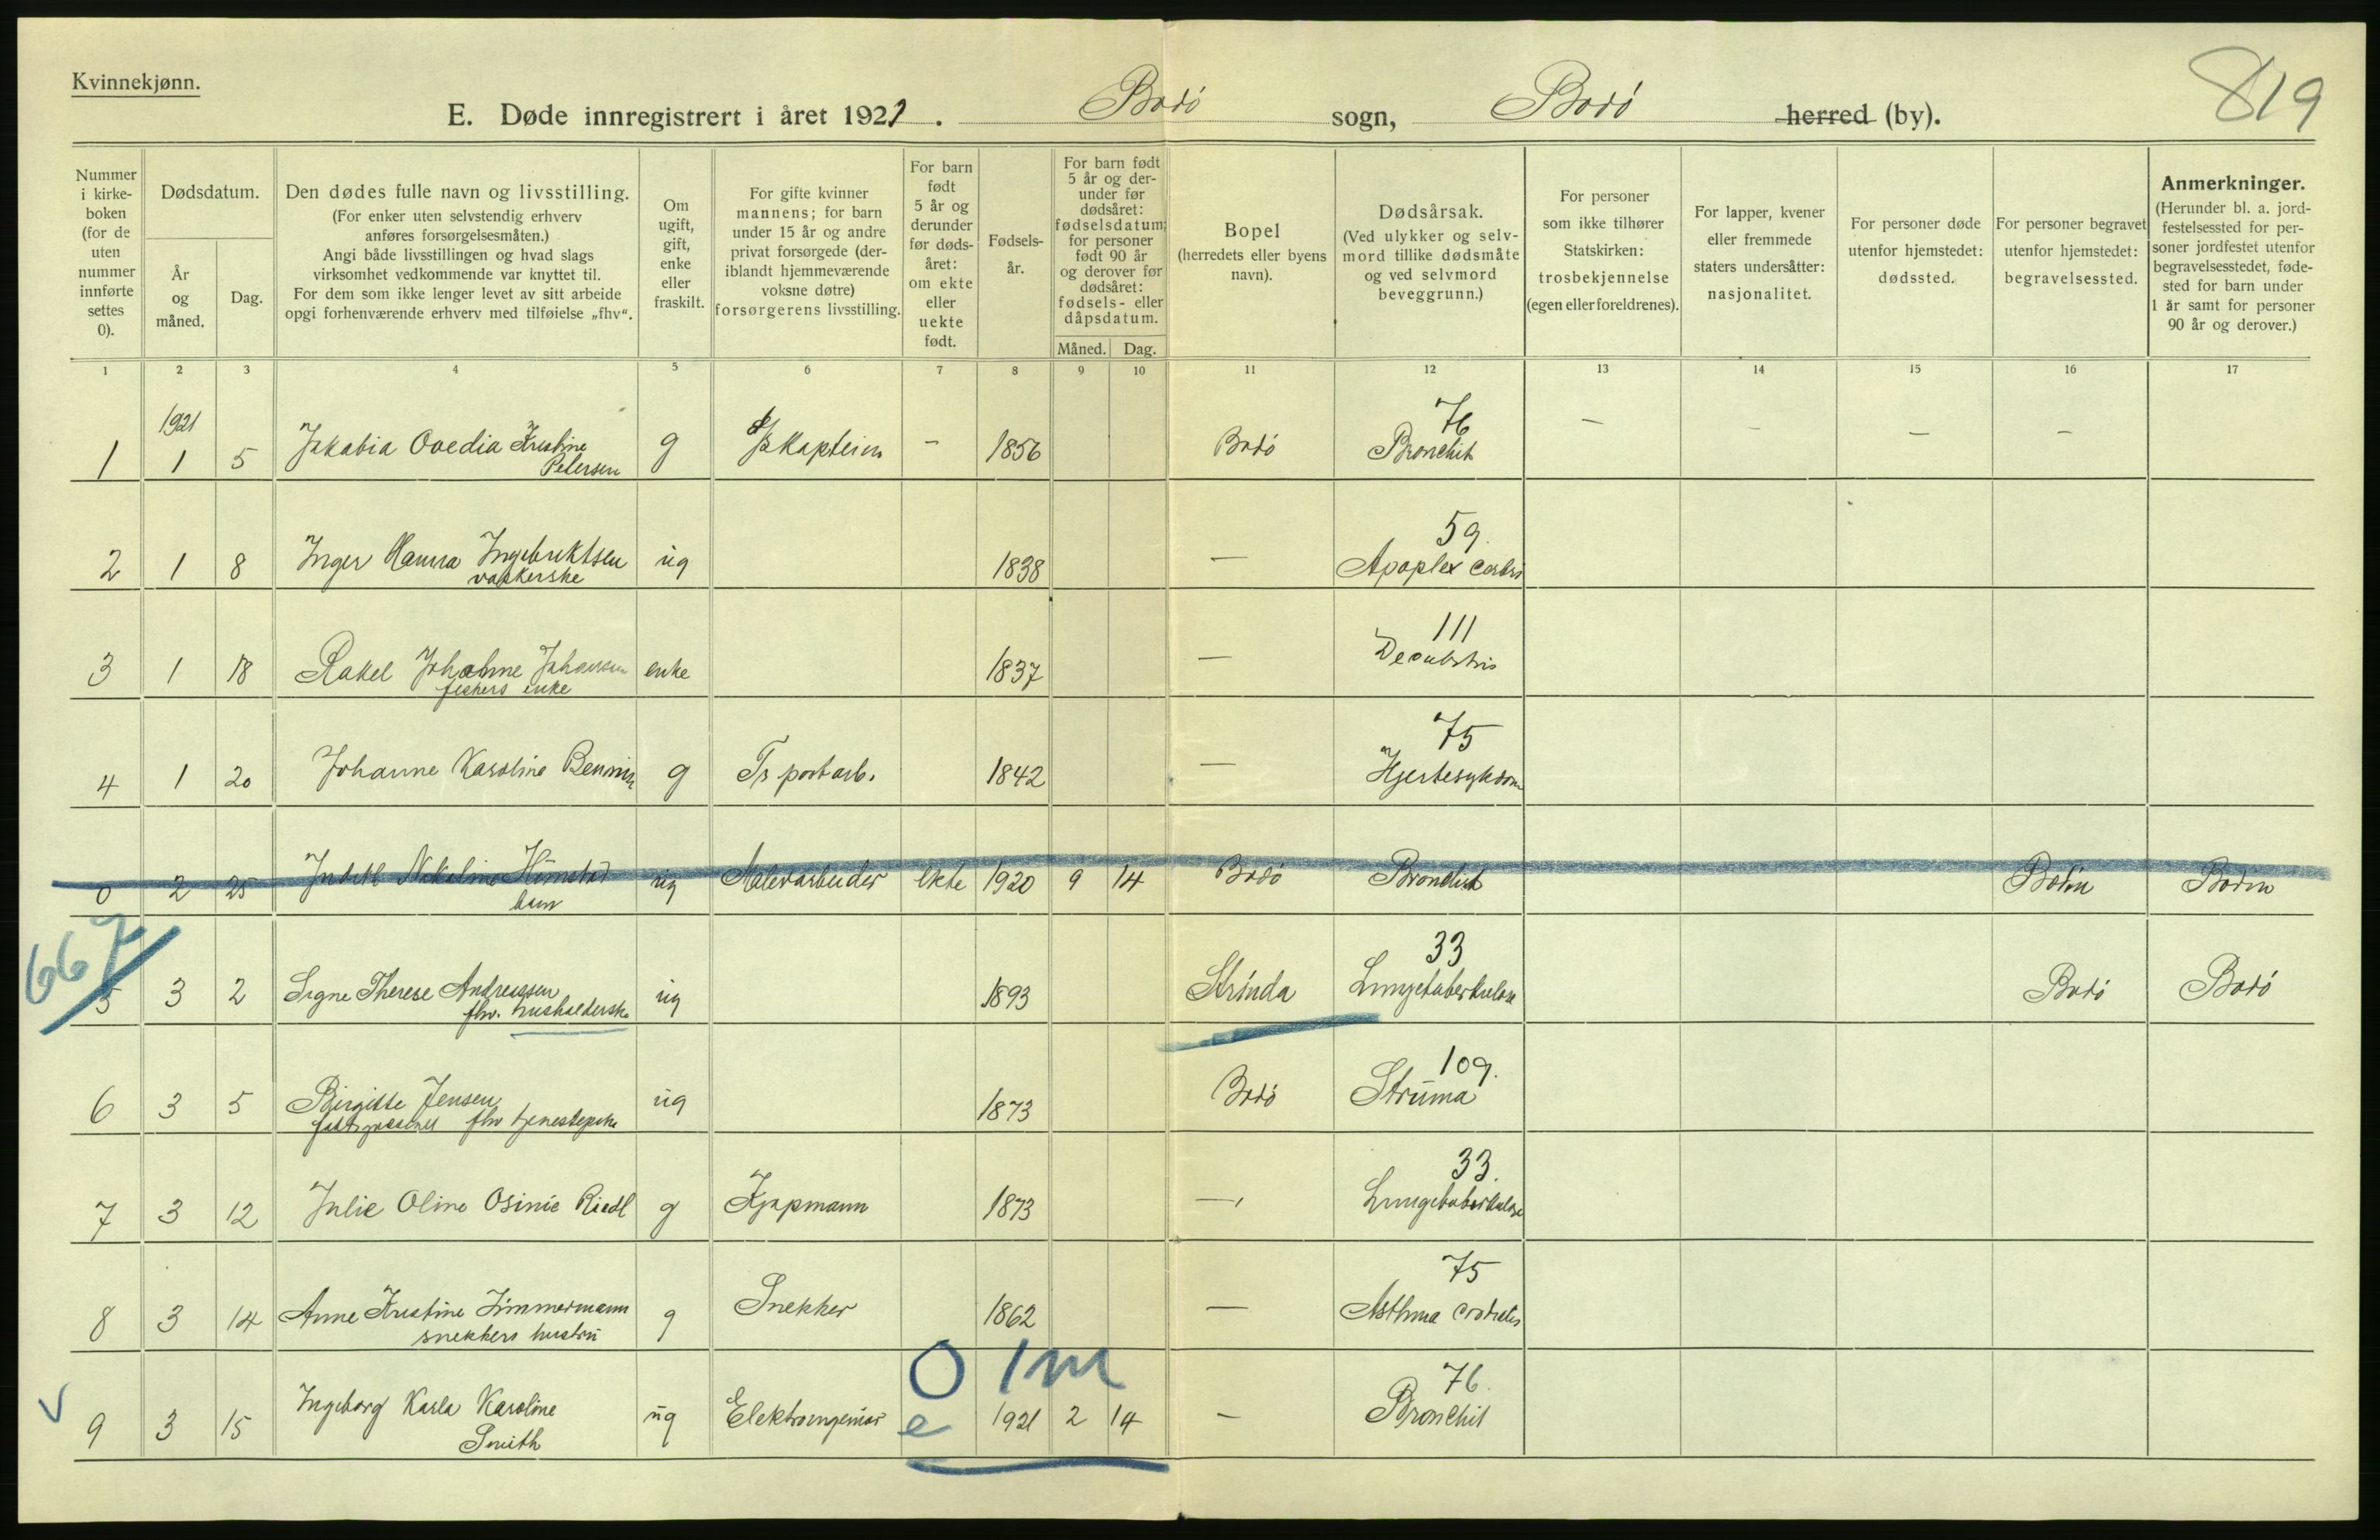 Kvinnekjønn.
819
E. Døde innregistrert i året 1921. Bodö sogn, Bodö herred (by).
Nummer i kirke-boken (for de uten nummer innførte settes 0).
Dødsdatum.
År og måned.
Dag.
Den dødes fulle navn og livsstilling.
(For enker uten selvstendig erhverv anføres forsørgelsesmåten.)
Angi både livsstillingen og hvad slags virksomhet vedkommende var knyttet til.
For dem som ikke lenger levet av sitt arbeide opgi forhenværende erhverv med tilføielse „fhv“.
Om ugift, gift, enke eller fraskilt.
For gifte kvinner mannens; for barn under 15 år og andre privat forsørgede (der-iblandt hjemmeværende voksne døtre) forsørgerens livsstilling.
For barn født 5 år og derunder før døds-året: om ekte eller uekte født.
Fødsels-år.
For barn født 5 år og der-under før dødsåret: fødselsdatum; for personer født 90 år og derover før dødsåret: fødsels- eller dåpsdatum.
Måned. Dag.
Bopel (herredets eller byens navn).
Dødsårsak.
(Ved ulykker og selv-mord tillike dødsmåte og ved selvmord beveggrunn.)
For personer som ikke tilhører Statskirken: trosbekjennelse (egen eller foreldrenes).
For lapper, kvener eller fremmede staters undersåtter: nasjonalitet.
For personer døde utenfor hjemstedet: dødssted.
For personer begravet utenfor hjemstedet: begravelsessted.
Anmerkninger.
(Herunder bl. a. jord-festelsessted for per-soner jordfestet utenfor begravelsesstedet, føde-sted for barn under 1 år samt for personer 90 år og derover.)
1 2 3 4 5 6 7 8 9 10 11 12 13 14 15 16 17
1921 76
1 1 5 Jakobia Ovedia Kristine Petersen g Skaptein – 1856 Bodö Bronchit – – – –
59.
2 1 8 Inger Hanna Ingebriktsen vaskerske ug 1838 — Apoplex cerebri
111
3 1 18 Rakel Johanne Johansen fiskers enke enke 1837 — Decubitus
75
4 1 20 Johanne Karoline g Tr portarb. 1842 — Hjertesykdom
0 2 25 Nikoline barn ug Malerarbeider ekte 1920 9 14 Bodö Bronchit Bodin Bodin
667 33
5 3 2 Signe Therese Andreassen fhv. husholderske ug 1893 Strinda Lungetuberkulose Bodö Bodö
109.
6 3 5 Birgitte Jensen fhv tjenestepike ug 1873 Bodö Struma
33.
7 3 12 Julie Oline Osinie Riedl g Kjøpmann 1873 — Lungetuberkulose
75
8 3 14 Anne Kristine Zimmermann snekkers hustru g Snekker 1862 — Asthma
0 1 m 76.
9 3 15 Ingeborg Karla Karoline Smith ug Elektroingeniør e 1921 2 14 – Bronchit